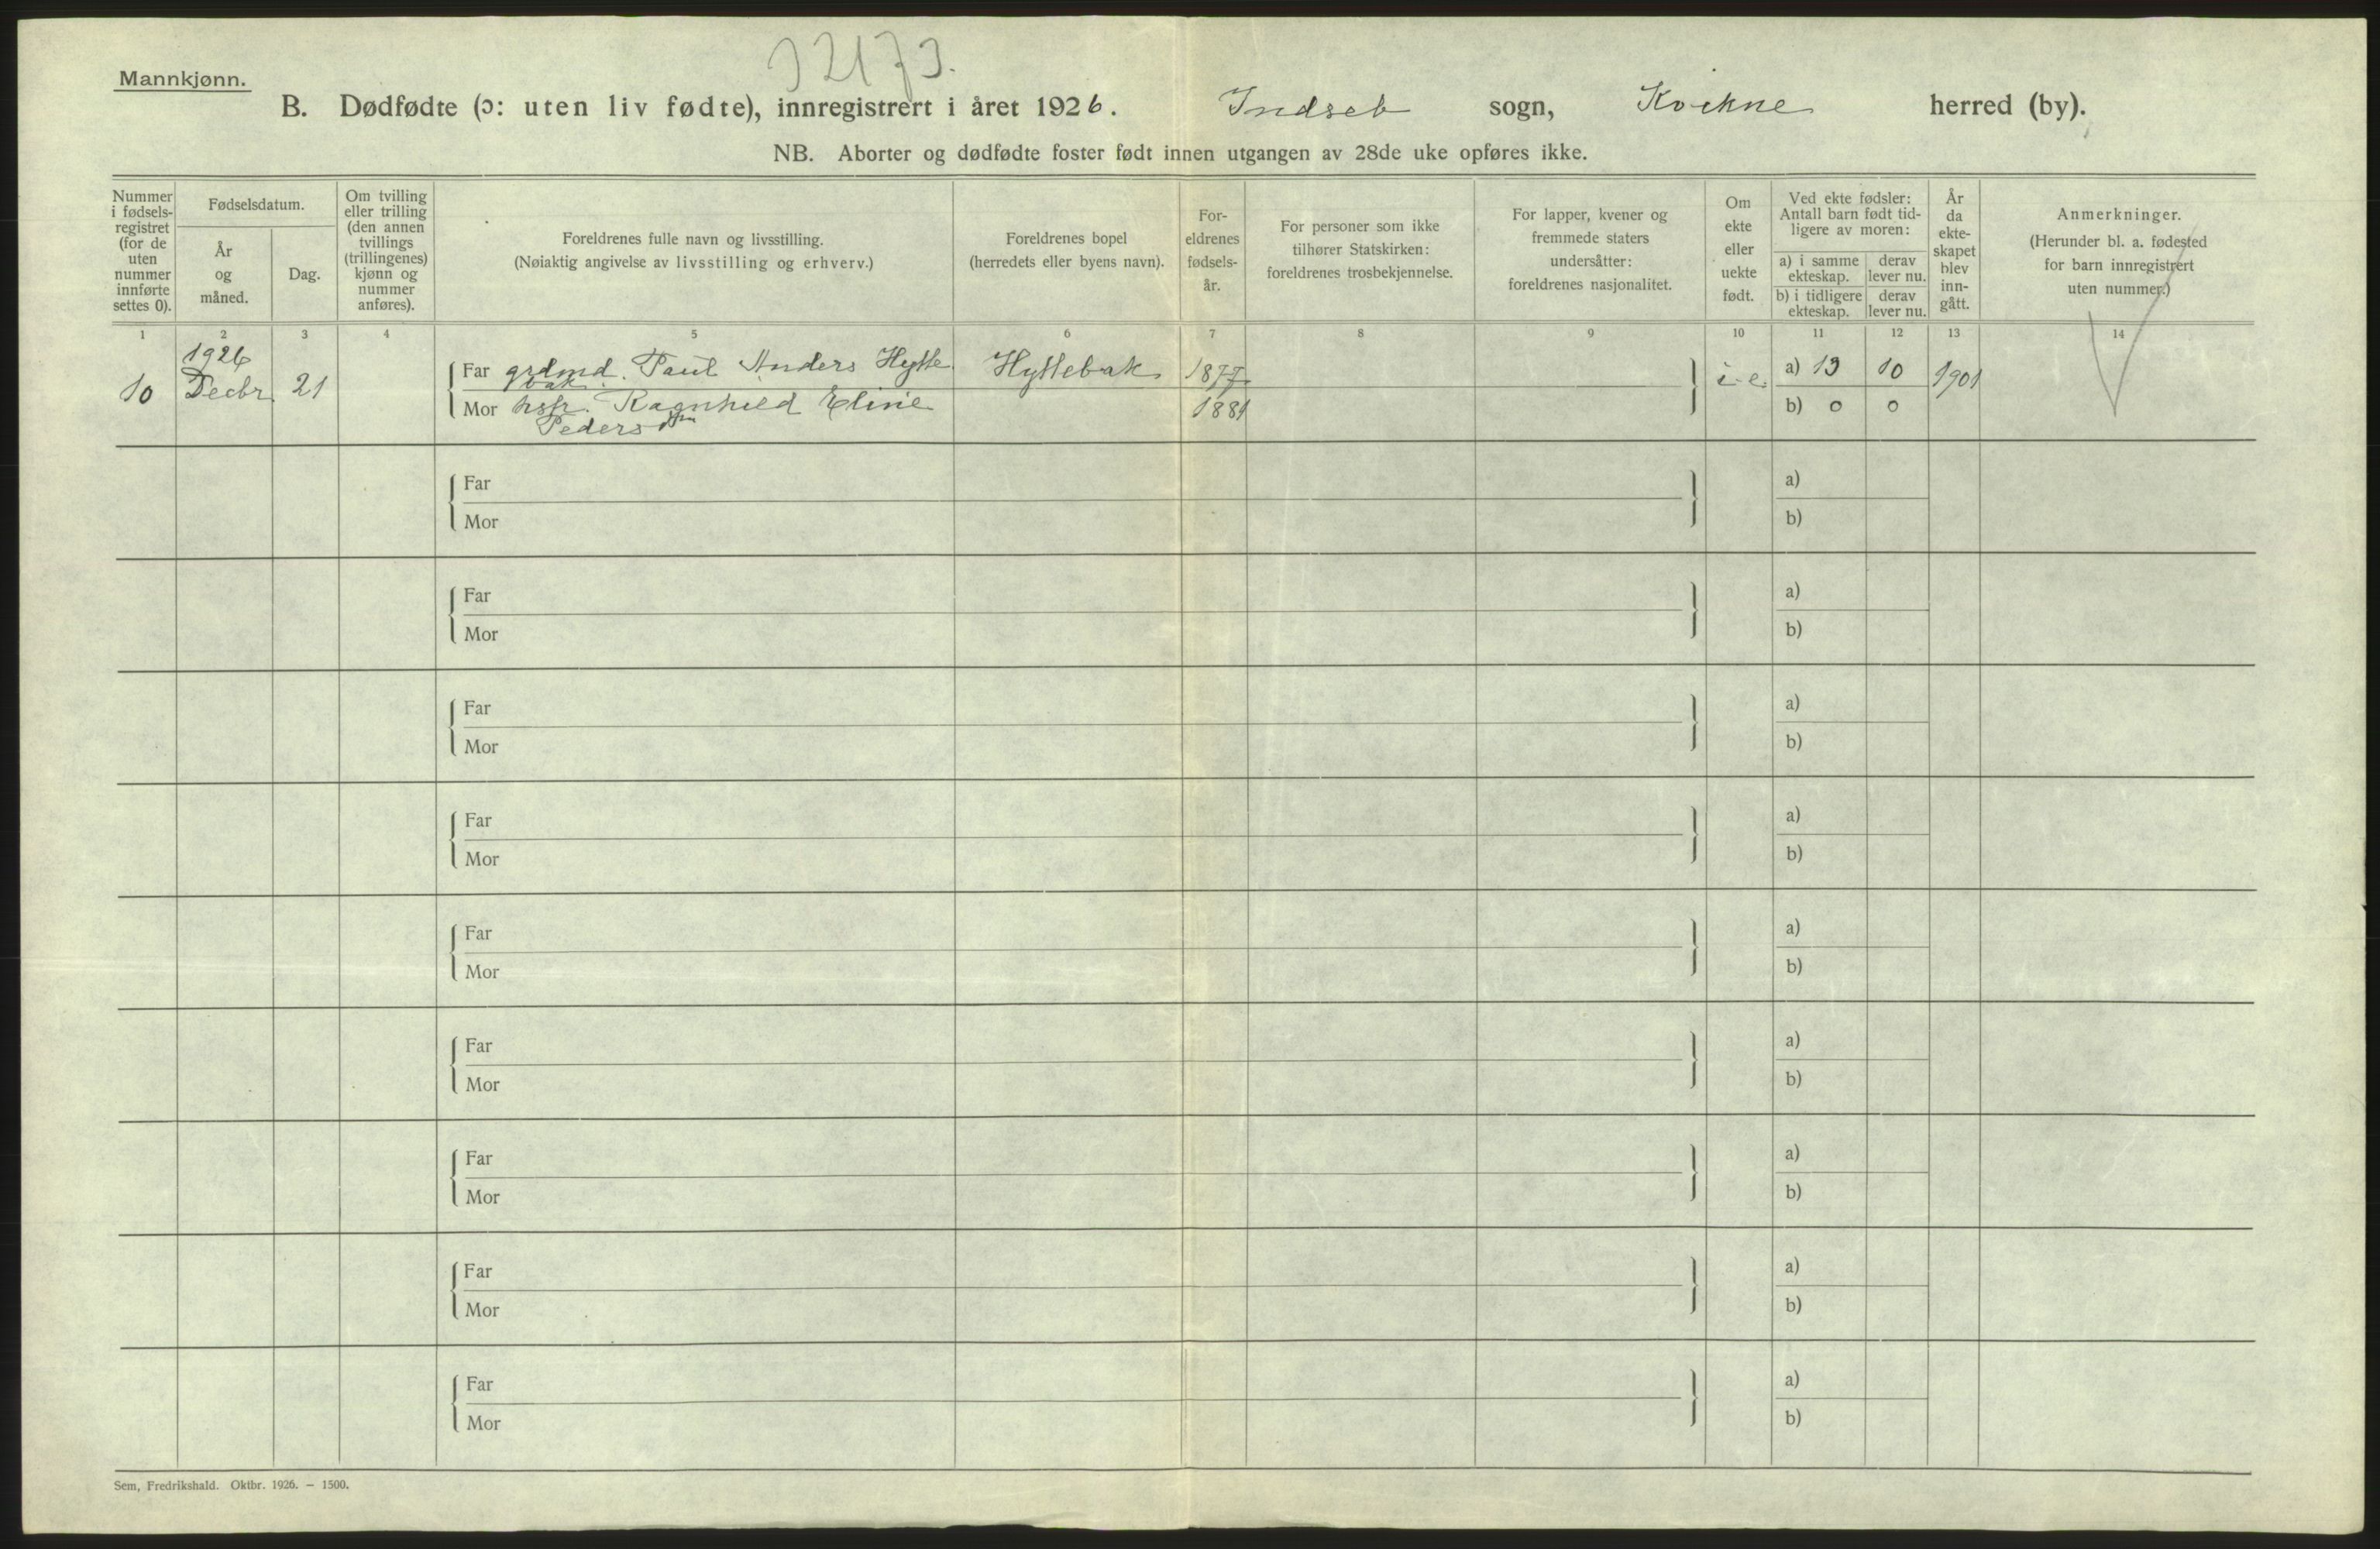 32173.
Mannkjønn.
B. Dødfødte (ɔ: uten liv fødte), innregistrert i året 1926. Indset sogn, Kvikne herred (by).
NB. Aborter og dødfødte foster født innen utgangen av 28de uke opføres ikke.
Nummer
i fødsels-
registret
(for de
uten
nummer
innførte
settes 0).
Fødselsdatum.
År
og
måned.
Dag.
Om tvilling
eller trilling
(den annen
tvillings
(trillingenes)
kjønn og
nummer
anføres).
Foreldrenes fulle navn og livsstilling.
(Nøiaktig angivelse av livsstilling og erhverv.)
Foreldrenes bopel
(herredets eller byens navn).
For-
eldrenes
fødsels-
år.
For personer som ikke
tilhører Statskirken:
foreldrenes trosbekjennelse.
For lapper, kvener og
fremmede staters
undersåtter:
foreldrenes nasjonalitet.
Om
ekte
eller
uekte
født.
Ved ekte fødsler:
Antall barn født tid-
ligere av moren:
a) i samme
ekteskap.
derav
lever nu.
b) i tidligere
ekteskap.
derav
lever nu.
År
da
ekte-
skapet
blev
inn-
gått.
Anmerkninger.
(Herunder bl. a. fødested
for barn innregistrert
uten nummer.)
1 2 3 4 5 6 7 8 9 10 11 12 13 14
1926
10 Decbr. 21
Far grdmd. Paul Anders Hytte Hyttebak 1877
bak.
Mor hstr. Ragnhild Eline 1881
Pedersdtr
i e. a) 13 10 1901
b) 0 0
Far a)
Mor b)
Far a)
Mor b)
Far a)
Mor b)
Far a)
Mor b)
Far a)
Mor b)
Far a)
Mor b)
Far a)
Mor b)
Far a)
Mor b)
Far a)
Mor b)
Sem, Fredrikshald. Oktbr. 1926. – 1500.